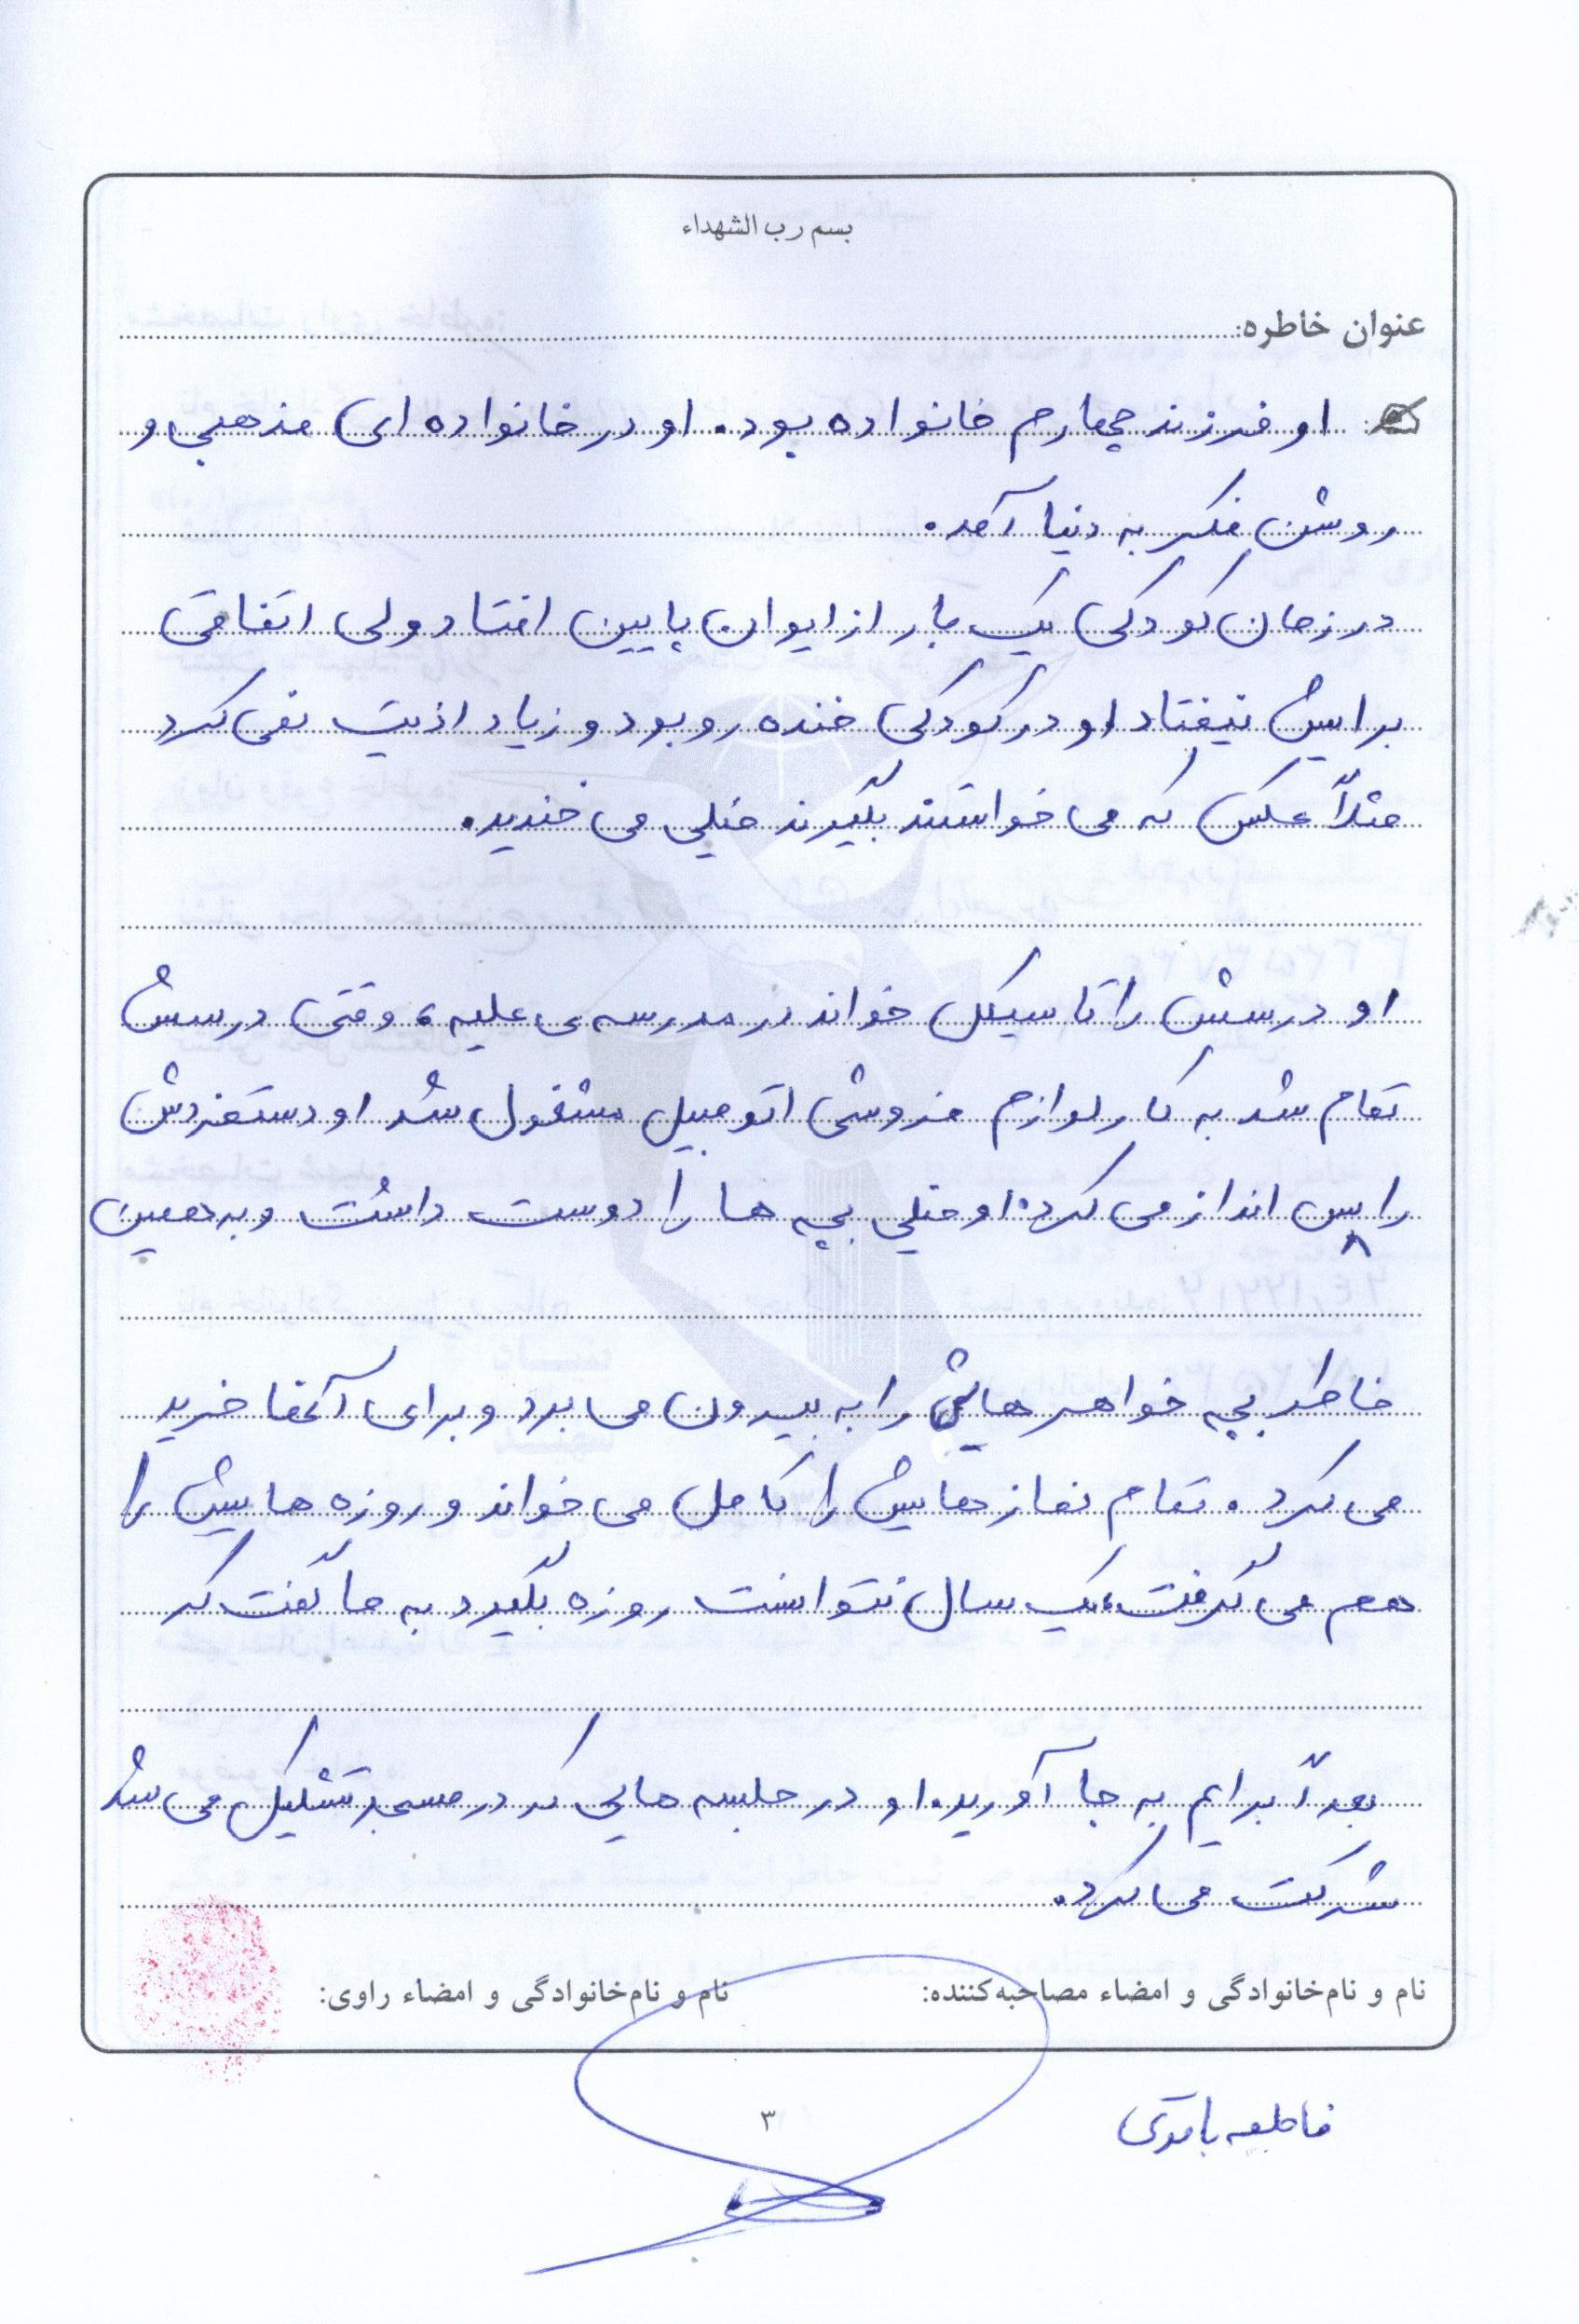 بسم رب الشهداء
عنوان خاطره:
او فرزند چهارم خانواده بود. او در خانواده ای مذهبی و
روشن فکر به دنیا آمد.
در زمان کودکی یک بار از ایوان پایین افتاد ولی اتفاقی
برایش نیفتاد او در کودکی خنده رو بود و زیاد اذیت نمی کرد
مثلاً عکس که می خواستند بگیرند خیلی می خندید.
او درسش را تا سیکل خواند در مدرسه ی علیه، وقتی درسش
تمام شد به کار لوازم فروشی اتومبیل مشغول شد او دستمزدش
را پس انداز می کرد. او خیلی بچه ها را دوست داشت و به همین
خاطر بچه خواهرهایش را به بیرون می برد و برای آنها خرید
می کرد. تمام نمازهایش را کامل می خواند و روزه هایش را
هم می گرفت، یک سال نتوانست روزه بگیرد به ما گفت که
بعداً برایم به جا آورید. او در جلسه هایی که در مسجد تشکیل می شد
شرکت می کرد.
نام و نام‌خانوادگی و امضاء مصاحبه‌کننده:
نام و نام‌خانوادگی و امضاء راوی:
فاطمه
۳